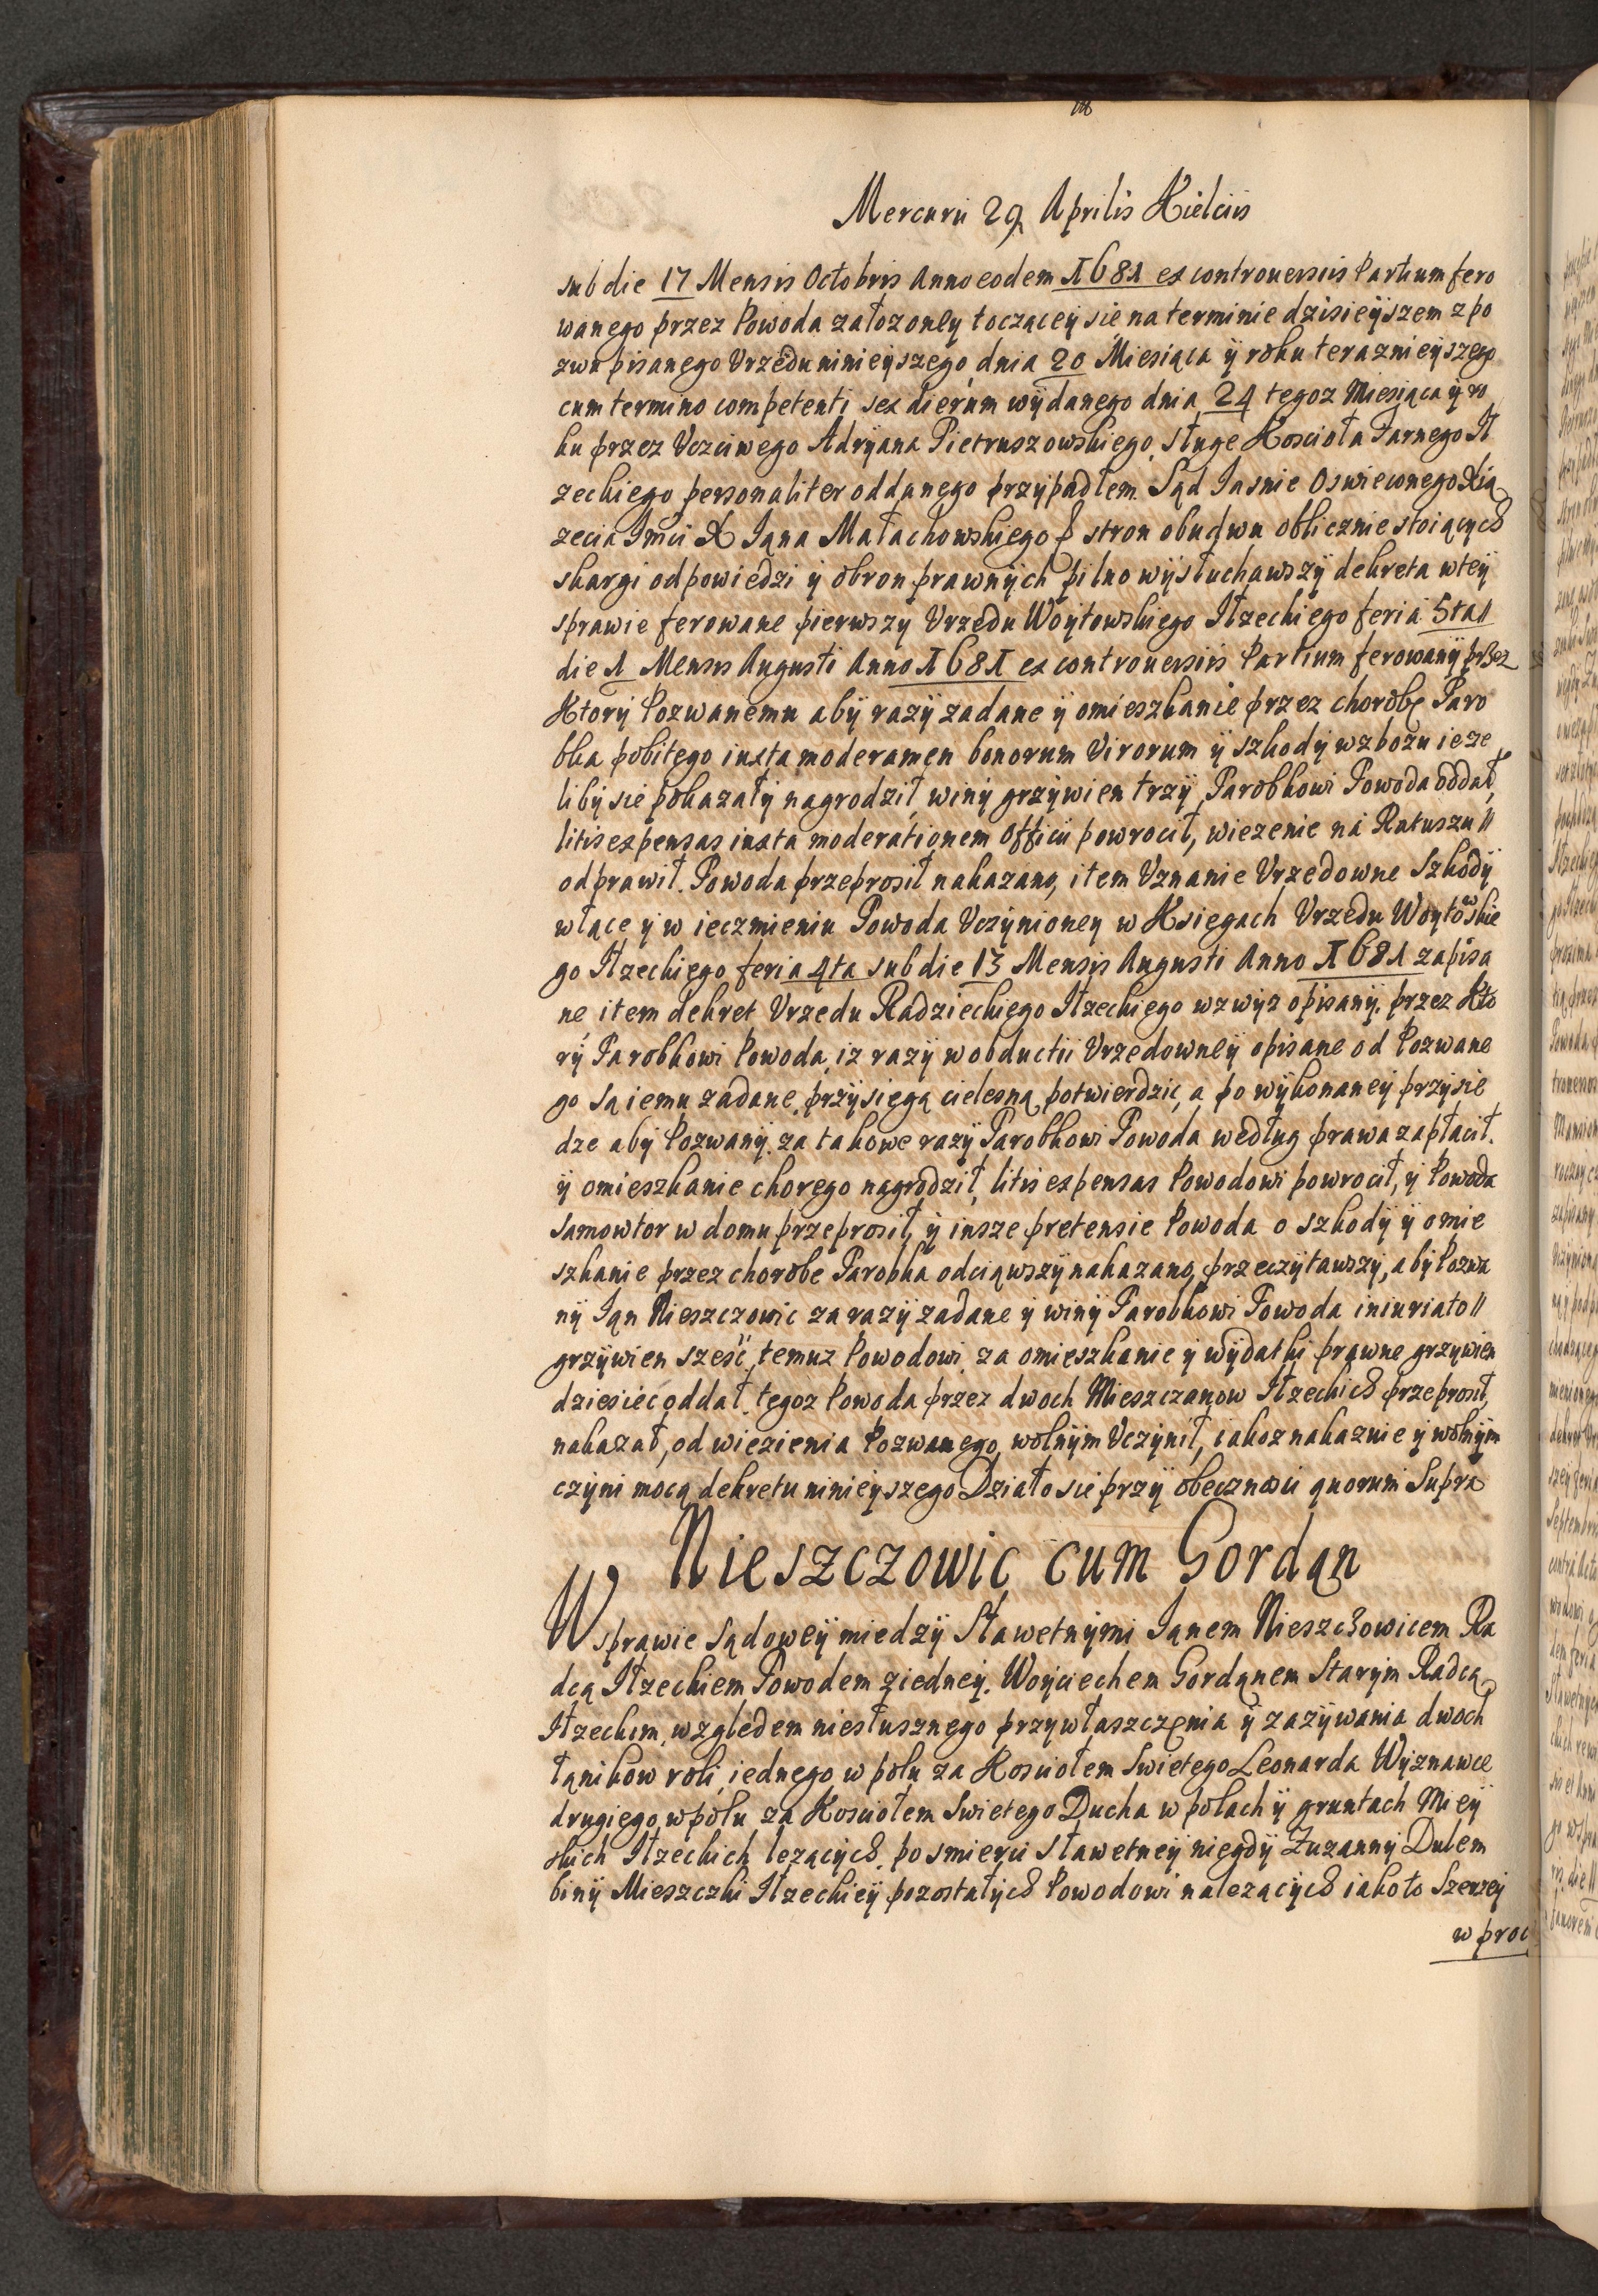 Mercurii 29 Aprilis Kielciis
sub die 17 Mensis Octobris Anno eodem 1681 ex controuersiis Partium fero
wanego przez Powoda załozoney toczącey sie na terminie dzisieyszem z po
zwu pisanego Vrzędu ninieyszego dnia 20 Miesiąca ÿ roku teraznieyszego
cum termino competenti sex dierum wÿdanego dnia 24 tegoz Miesiąca ÿ ro
ku przez Vczciwego Adrÿana Pietruszowskiego Sługe Koscioła Farnego Ił
zeckiego personaliter oddanego przÿpadłem Sąd Iasnie Oswieconego Xią
zecia Imci X Iana Małachowskiego stron obudwu oblicznie stoiących
skargi odpowiedzi ÿ obron prawnÿch pilno wÿsłuchawszÿ dekreta wteÿ
sprawie ferowane pierwszy Vrzędu Woÿtowskiego Iłzeckiego feria 5ta
die 1 Mensis Augusti Anno 1681 ex controuersiis Partium ferowanÿ przez
Ktorÿ Pozwanemu abÿ razÿ zadane ÿ omieszkanie przez chorobę Paro
bka pobitego iuxta moderamen bonorum Virorum ÿ szkodÿ wzbozu ieze
libÿ sie pokazałÿ nagrodził, winÿ grzÿwien trzÿ Parobkowi Powoda oddał,
litis expensas iuxta moderationem Officii powrocił, wiezenie na Ratuszu //
odprawił. Powoda przeprosił nakazano, item Vznanie Vrzedowne Szkodÿ
włące ÿ w ieczmieniu Powoda Vczÿnioney w Ksiegach Vrzędu Woytowskie
go Iłzeckiego feria 4ta sub die 13 Mensis Augusti Anno 1681 zapisa
ne item dekret Vrzedu Radzieckiego Iłzeckiego wzwÿz opisanÿ. przez Kto
rÿ Parobkowi Powoda, iz razÿ wobductii Vrzedowneÿ opisane od Pozwane
go Są iemu zadane, przÿsiegą cielesną potwierdzic, a po wÿkonaneÿ przÿsie
dze abÿ Pozwanÿ. za takowe razÿ Parobkowi Powoda według prawa zapłacił.
ÿ omieszkanie chorego nagrodził, litis expensas Powodowi powrocił, ÿ Powoda
samowtor w domu przeprosił, ÿ insze pretensie Powoda o szkodÿ ÿ omie
szkanie przez chorobe Parobka odciąwszÿ nakazano, przeczÿtawszÿ, abÿ Pozwa
nÿ Ian Nieszczowic za razÿ zadane ÿ winÿ Parobkowi Powoda iniuriato //
grzÿwien szesć, temuz Powodowi za omieszkanie ÿ wÿdatki prawne grzÿwien
dziesiec oddał, tegoz Powoda przez dwoch Mieszczanow Iłzeckich przeprosił,
nakazał, od wiezienia Pozwanego wolnÿm Vczÿnił, iakoz nakazuie ÿ wolnÿm
czÿni mocą dekretu ninieÿszego Działo sie przÿ obecznosci quorum Supra
Nieszczowic cum Gordan
W sprawie Sądoweÿ miedzÿ Sławetnÿmi Ianem Nieszchowicem Ra
dcą Iłzeckiem Powodem ziedneÿ. Woÿciechem Gordanem Starÿm Radcą
Iłzeckim, względem niesłusznego przÿwłaszczenia ÿ zazÿwania dwoch
łanikow roli, iednego w polu za Kosciołem Swietego Leonarda Wyznawce
drugiego wpolu za Kosciołem Swietego Ducha w polach ÿ gruntach Mieÿ
skich Iłzeckich lezącÿch, po smierci Sławetneÿ niegdÿ Zuzannÿ Dulem
binÿ Mieszczki Iłzeckieÿ pozostałÿch Powodowi nalezącÿch iako to Szerzeÿ
w proc